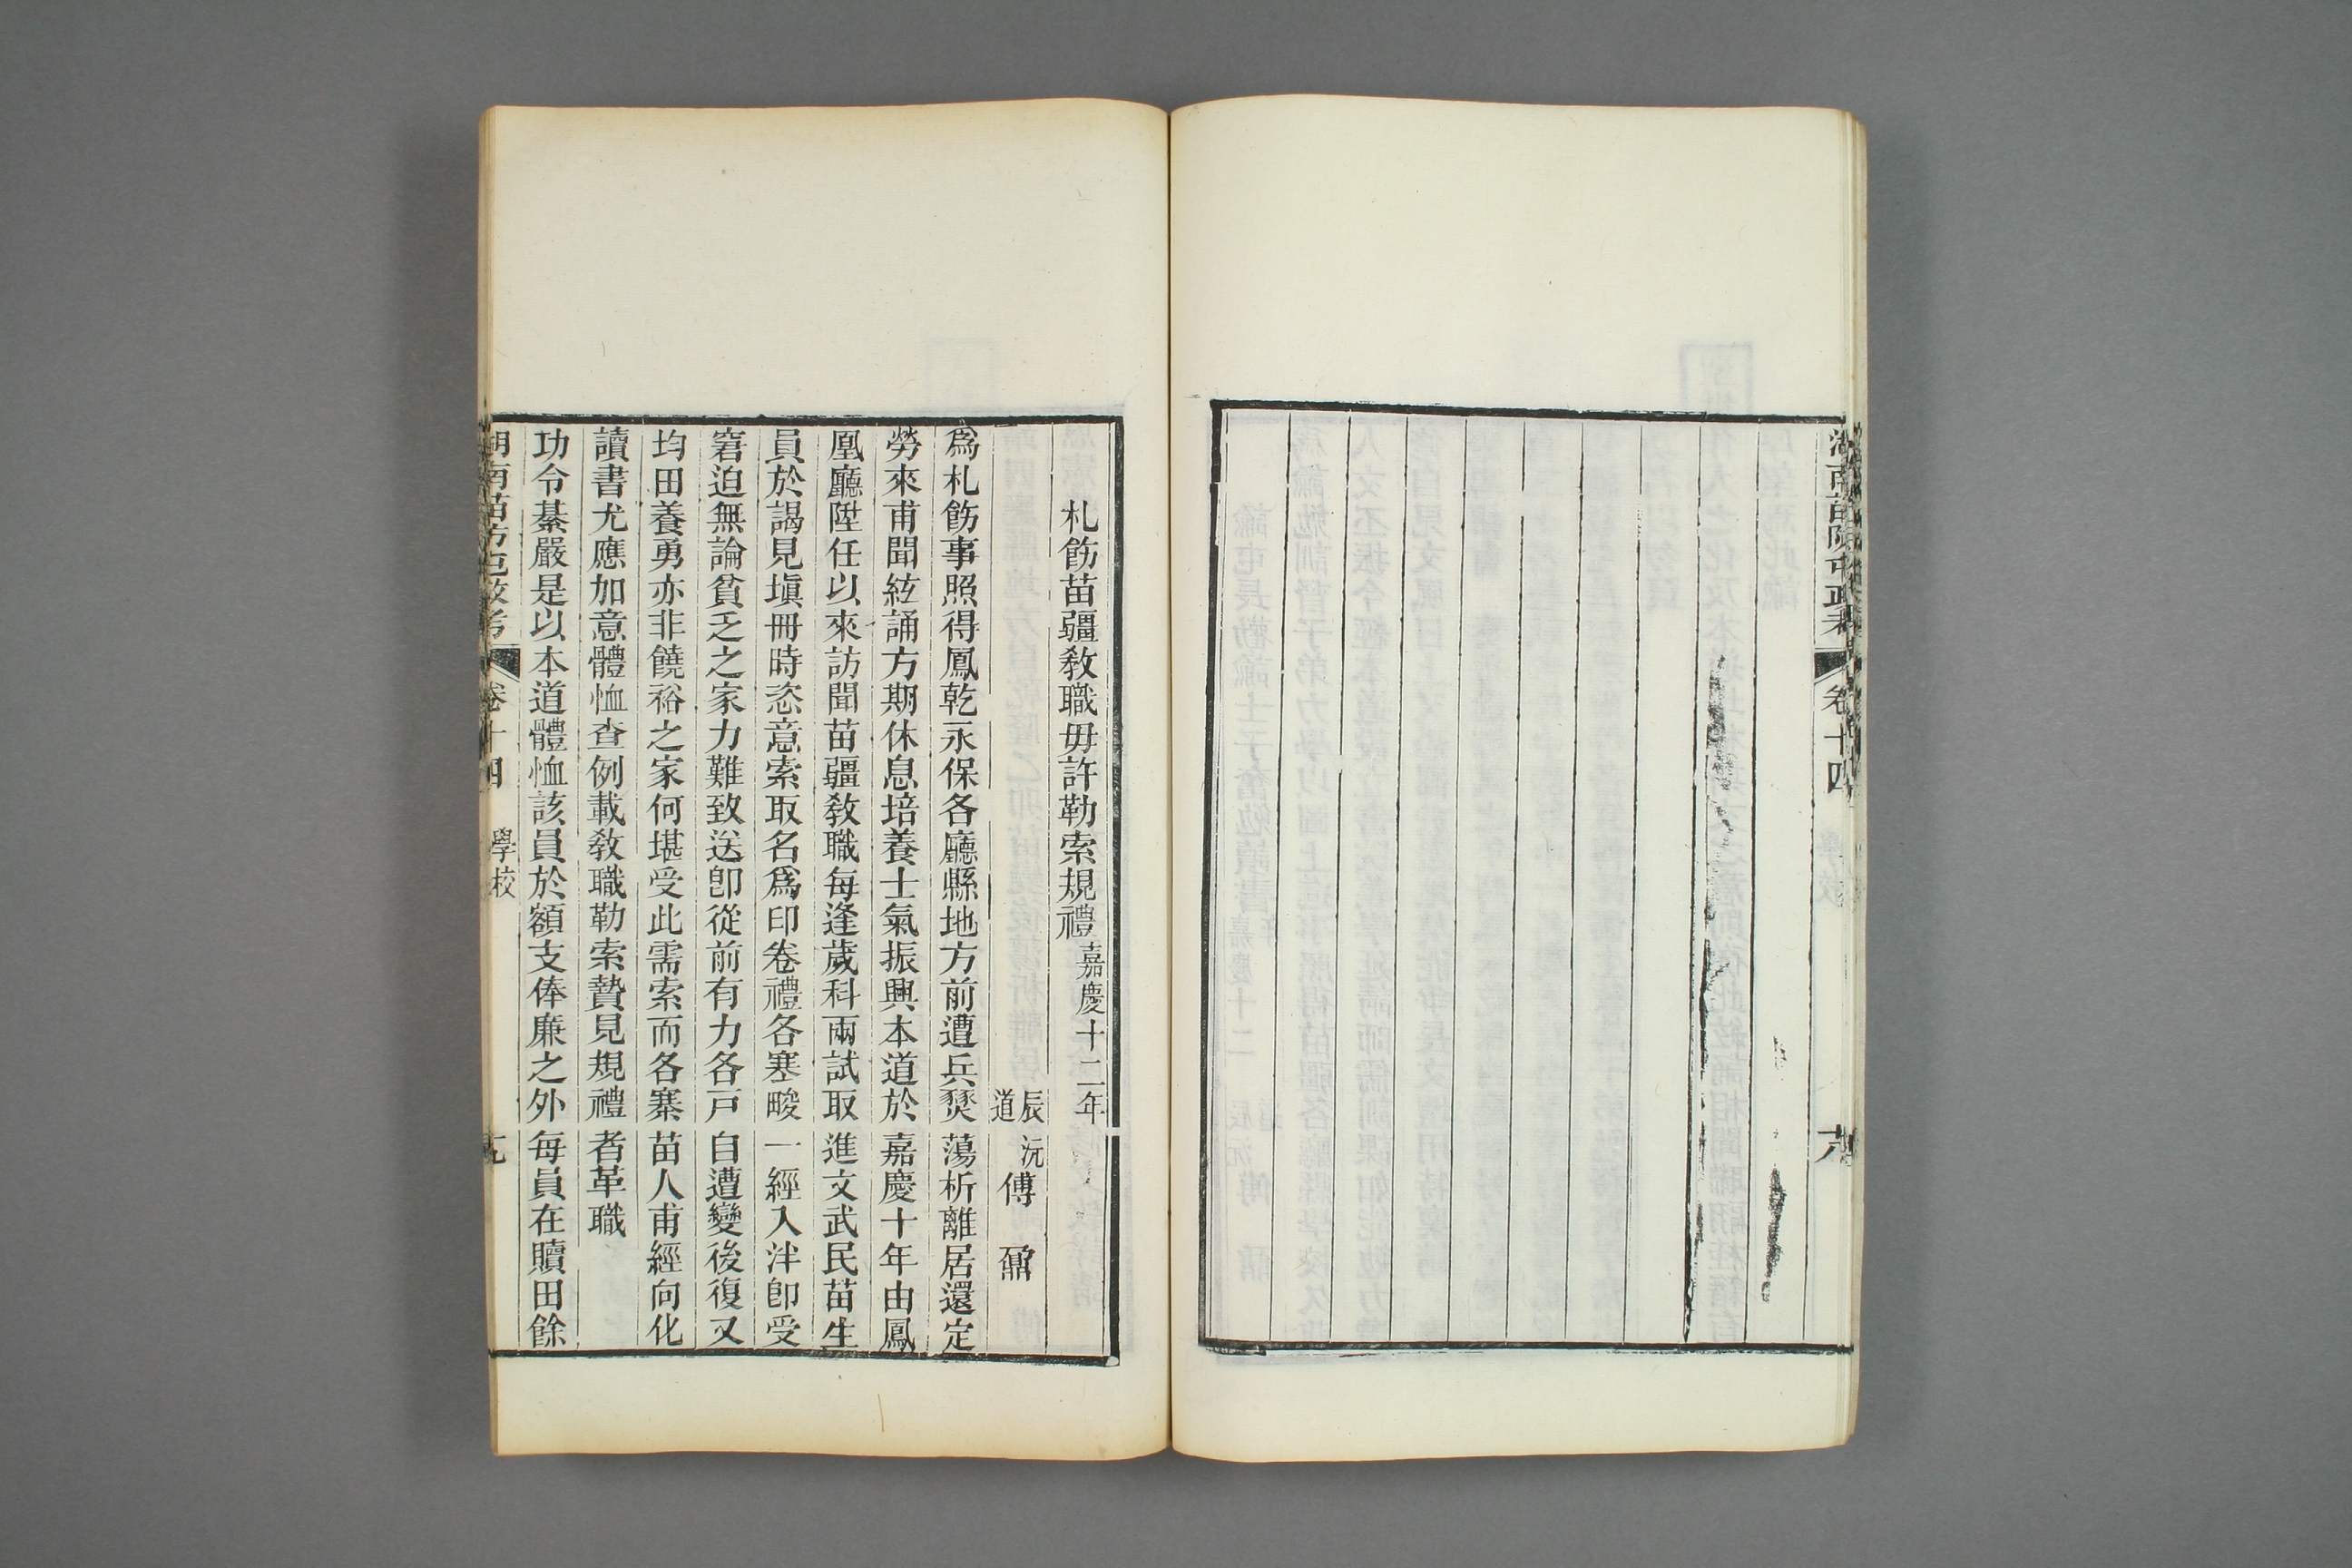 湖南苗防屯政考 卷十四
札飭苗疆敎職毋許勒索規禮嘉慶十二年
辰沅道傅鼐
爲札飭事照得鳳乾永保各廳縣地方前遭兵燹蕩析離居還定
勞來甫聞絃誦方期休息培養士氣振興本道於嘉慶十年由鳳
凰廳陞任以來訪聞苗疆敎職每逢歲科兩試取進文武民苗生
員於謁見塡冊時恣意索取名爲印卷禮各塞畯一經入泮卽受
窘迫無論貧乏之家力難致送卽從前有力各戸自遭變後復又
均田養勇亦非饒裕之家何堪受此需索而各寨苗人甫經向化
讀書尤應加意體恤查例載敎職勒索贄見規禮者革職
功令綦嚴是以本道體恤該員於額支俸廉之外每員在贖田餘
湖南苗防屯政考 卷十四 學校